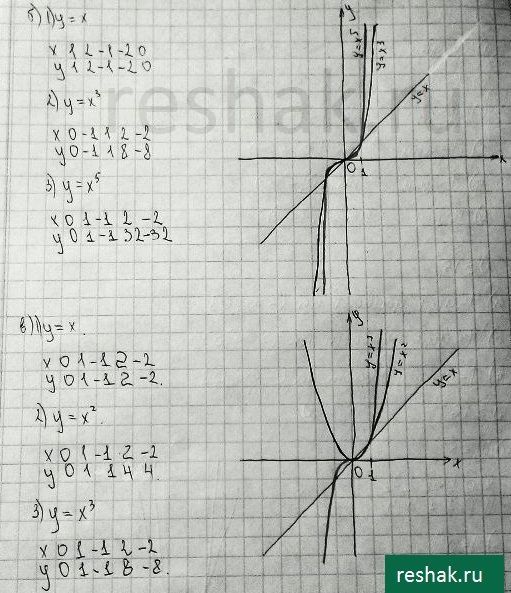 б) 1) y = x
x 1 2 -1 -2 0
y 1 2 -1 -2 0
2) y = x³
x 0 -1 1 2 -2
y 0 -1 1 8 -8
3) y = x⁵
x 0 1 -1 2 -2
y 0 1 -1 32 -32
y
y=x⁵
y=x³
y=x
0 1
x
reshak.ru
в) 1) y = x
x 0 1 -1 2 -2
y 0 1 -1 2 -2.
2) y = x².
x 0 1 -1 2 -2
y 0 1 1 4 4.
3) y = x³
x 0 1 -1 2 -2
y 0 1 -1 8 -8.
y
y=x³
y=x²
y=x
0 1
x
reshak.ru